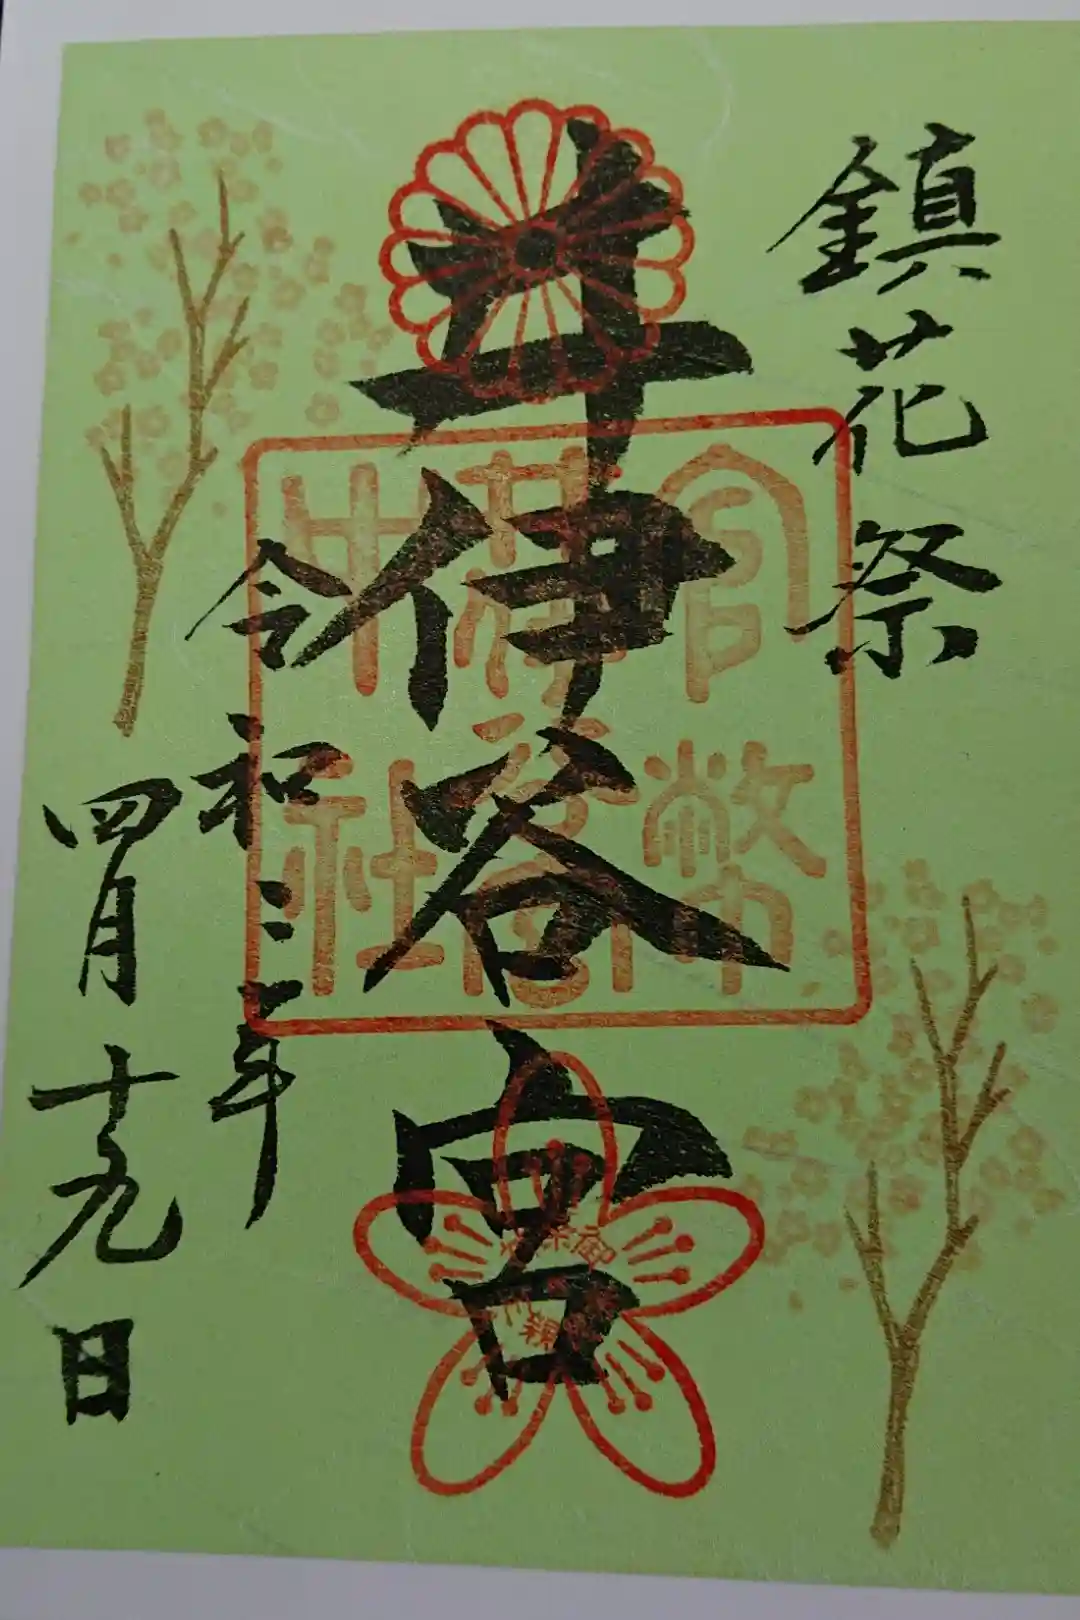 鎮花祭
井伊谷宮
令和三年
四月十九日
官幣
井伊谷宮
中社